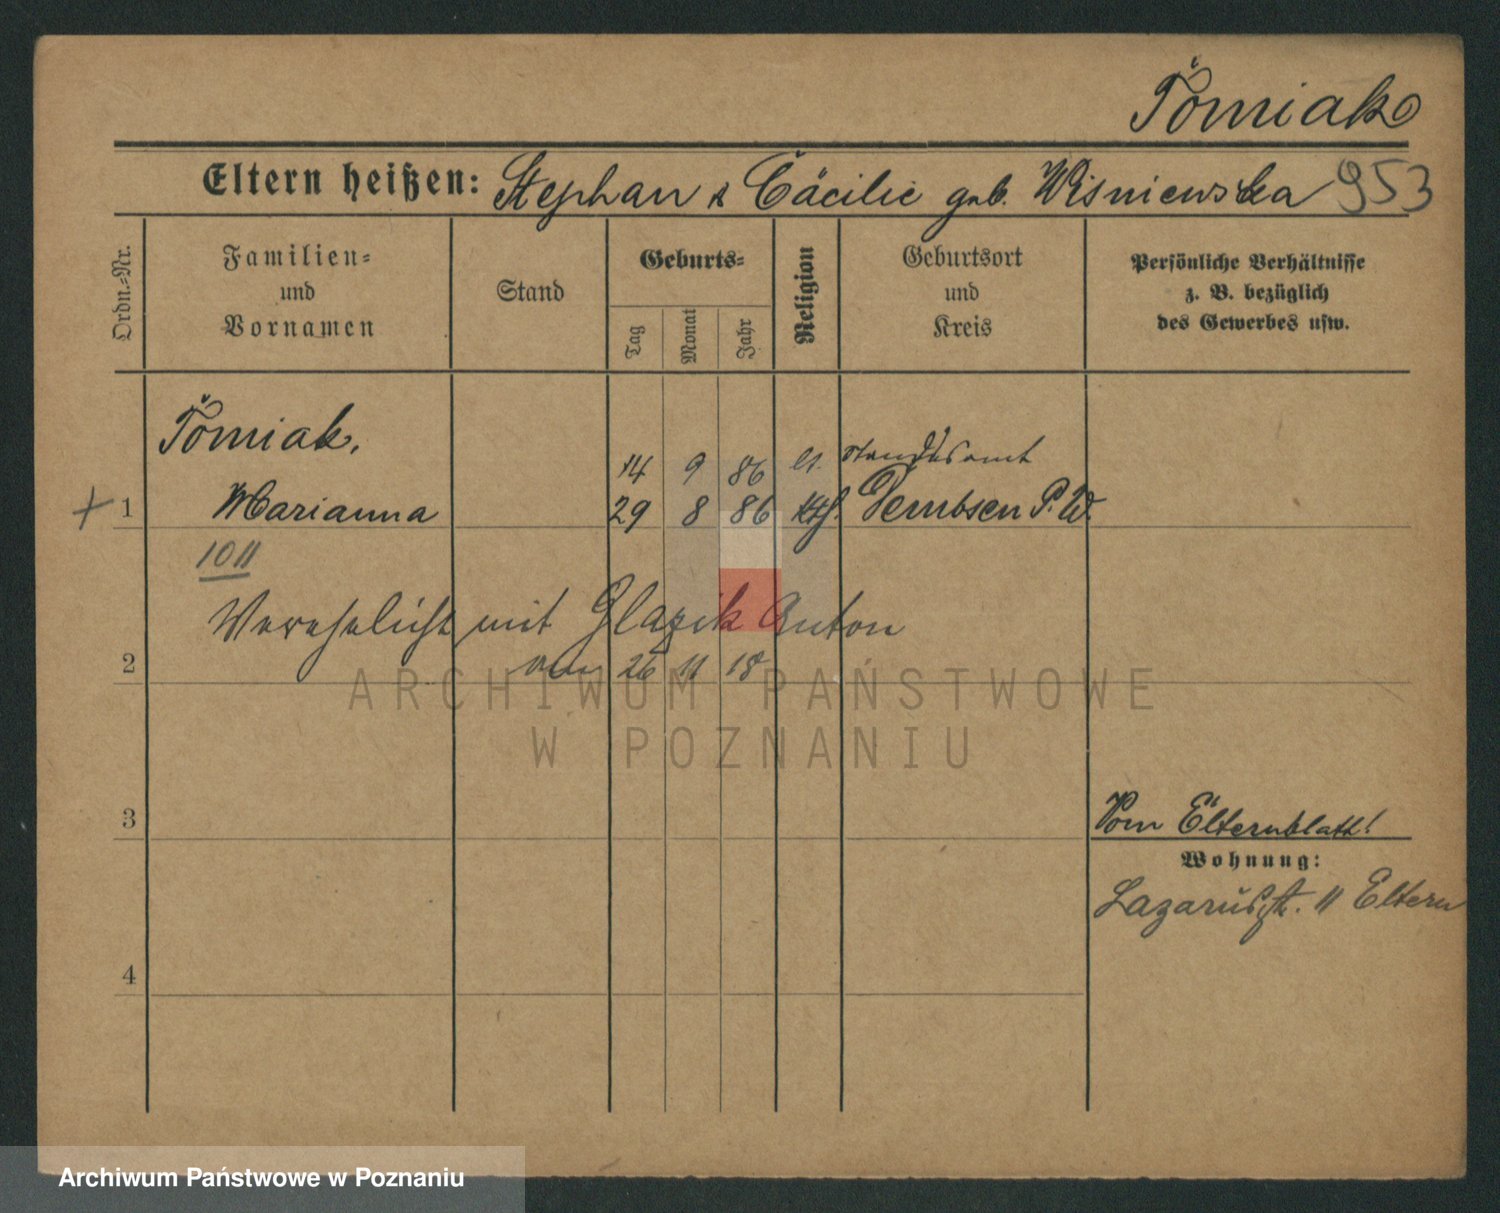 Tomiak
Eltern heißen: Stephan & Cäcilie geb. Wisniewska 953
Ordn.-Nr.
Familien- und Vornamen
Stand
Geburts-
Tag
Monat
Jahr
Religion
Geburtsort und Kreis
Persönliche Verhältnisse
z. B. bezüglich
des Gewerbes usw.
Tomiak,
14 9 86 lt. Standesamt
+ 1 Marianna 29 8 86 kth. Dembsen P. W.
1011
Verehelicht mit Glazik Anton
2 am 26 11 18
ARCHIWUM PAŃSTWOWE
W POZNANIU
3 Vom Elternblatt!
Wohnung:
Lazarusstr. 11 Eltern
4
Archiwum Państwowe w Poznaniu